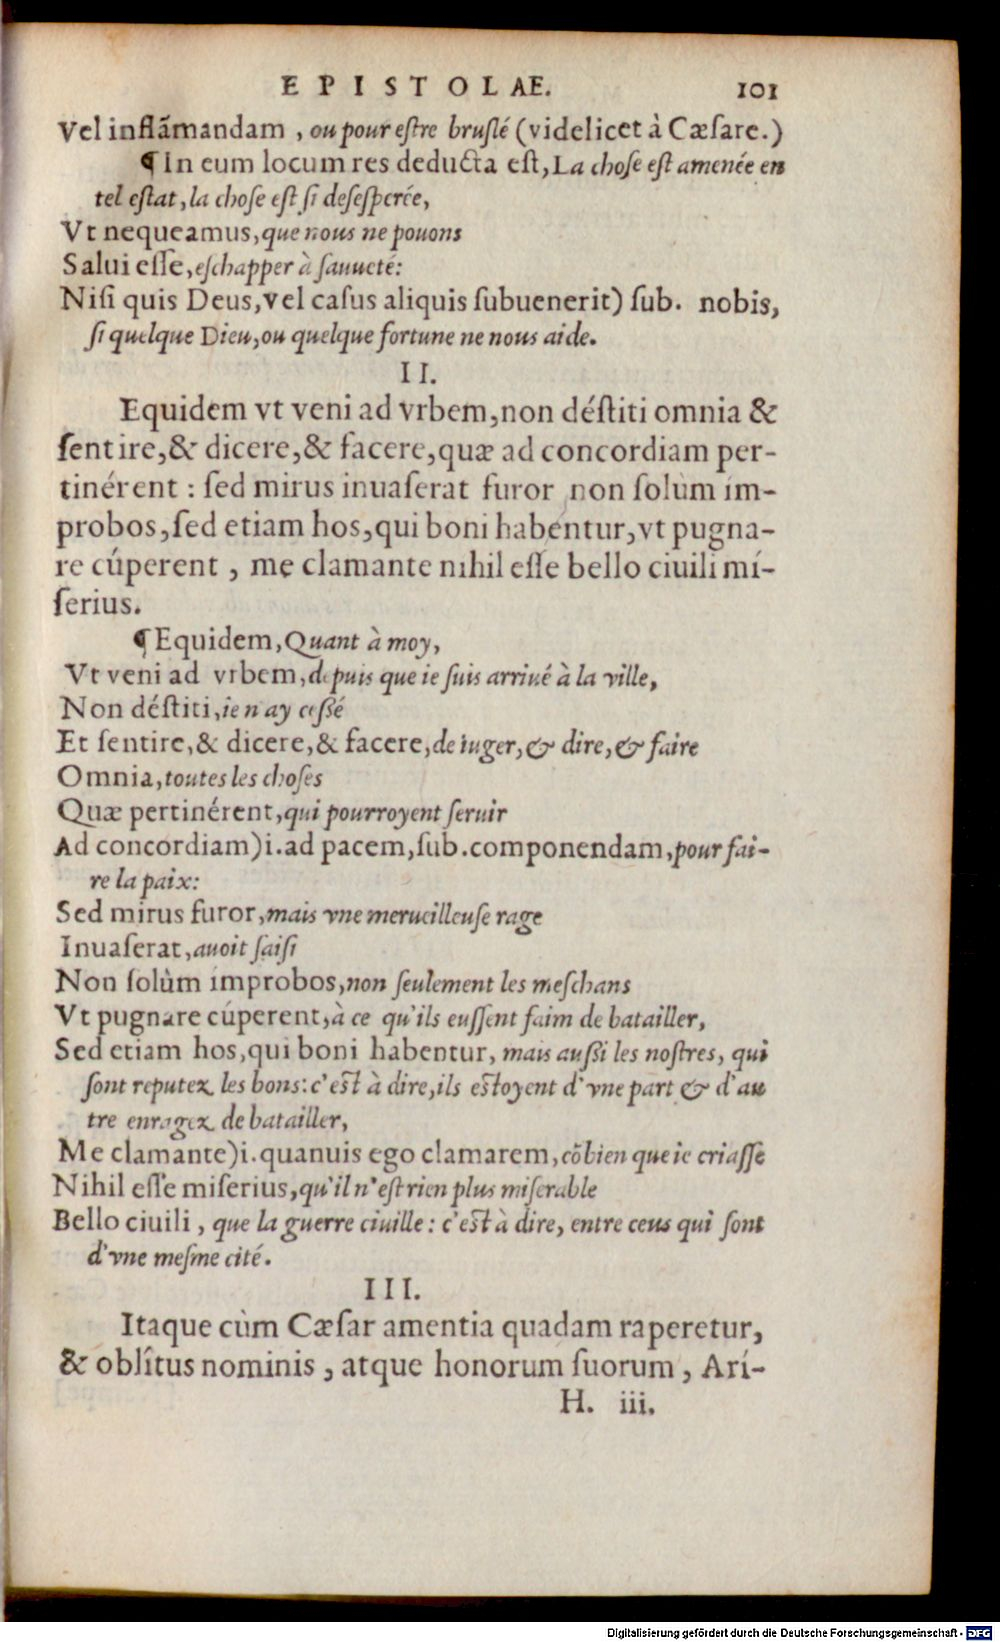 EPISTOLAE. 101
Vel inflãmandam , ou pour eſtre bruſlé (videlicet à Cæſare.)
¶In eum locum res deducta eſt, La choſe eſt amenée en
tel eſtat, la choſe eſt ſi deſeſperée,
Vt nequeamus, que nous ne pouons
Salui eſſe, eſchapper à ſauueté:
Niſi quis Deus, vel caſus aliquis ſubuenerit) ſub. nobis,
ſi quelque Dieu, ou quelque fortune ne nous aide.
II.
Equidem vt veni ad vrbem, non déſtiti omnia &
ſentire, & dicere, & facere, quæ ad concordiam per-
tinérent : ſed mirus inuaſerat furor non ſolùm im-
probos, ſed etiam hos, qui boni habentur, vt pugna-
re cúperent , me clamante nihil eſſe bello ciuili mí-
ſerius.
¶Equidem, Quant à moy,
Vt veni ad vrbem, depuis que ie ſuis arriué à la ville,
Non déſtiti, ie n'ay ceſſé
Et ſentire, & dicere, & facere, de iuger, & dire, & faire
Omnia, toutes les choſes
Quæ pertinérent, qui pourroyent ſeruir
Ad concordiam) i. ad pacem, ſub. componendam, pour fai-
re la paix:
Sed mirus furor, mais vne merueilleuſe rage
Inuaſerat, auoit ſaiſi
Non ſolùm improbos, non ſeulement les meſchans
Vt pugnare cúperent, à ce qu'ils euſſent faim de batailler,
Sed etiam hos, qui boni habentur, mais auſſi les noſtres, qui
ſont reputez les bons: c'eſt à dire, ils eſtoyent d'vne part & d'au
tre enragez de batailler,
Me clamante) i. quanuis ego clamarem, cõbien que ie criaſſe
Nihil eſſe miſerius, qu'il n'eſt rien plus miſerable
Bello ciuili , que la guerre ciuille : c'eſt à dire, entre ceus qui ſont
d'vne meſme cité.
III.
Itaque cùm Cæſar amentia quadam raperetur,
& oblîtus nominis , atque honorum ſuorum , Arí-
H. iii.
Digitalisierung gefördert durch die Deutsche Forschungsgemeinschaft - DFG